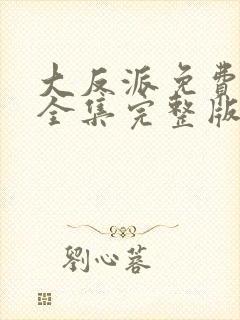 大反派免費
全集完整版
劉心蓉